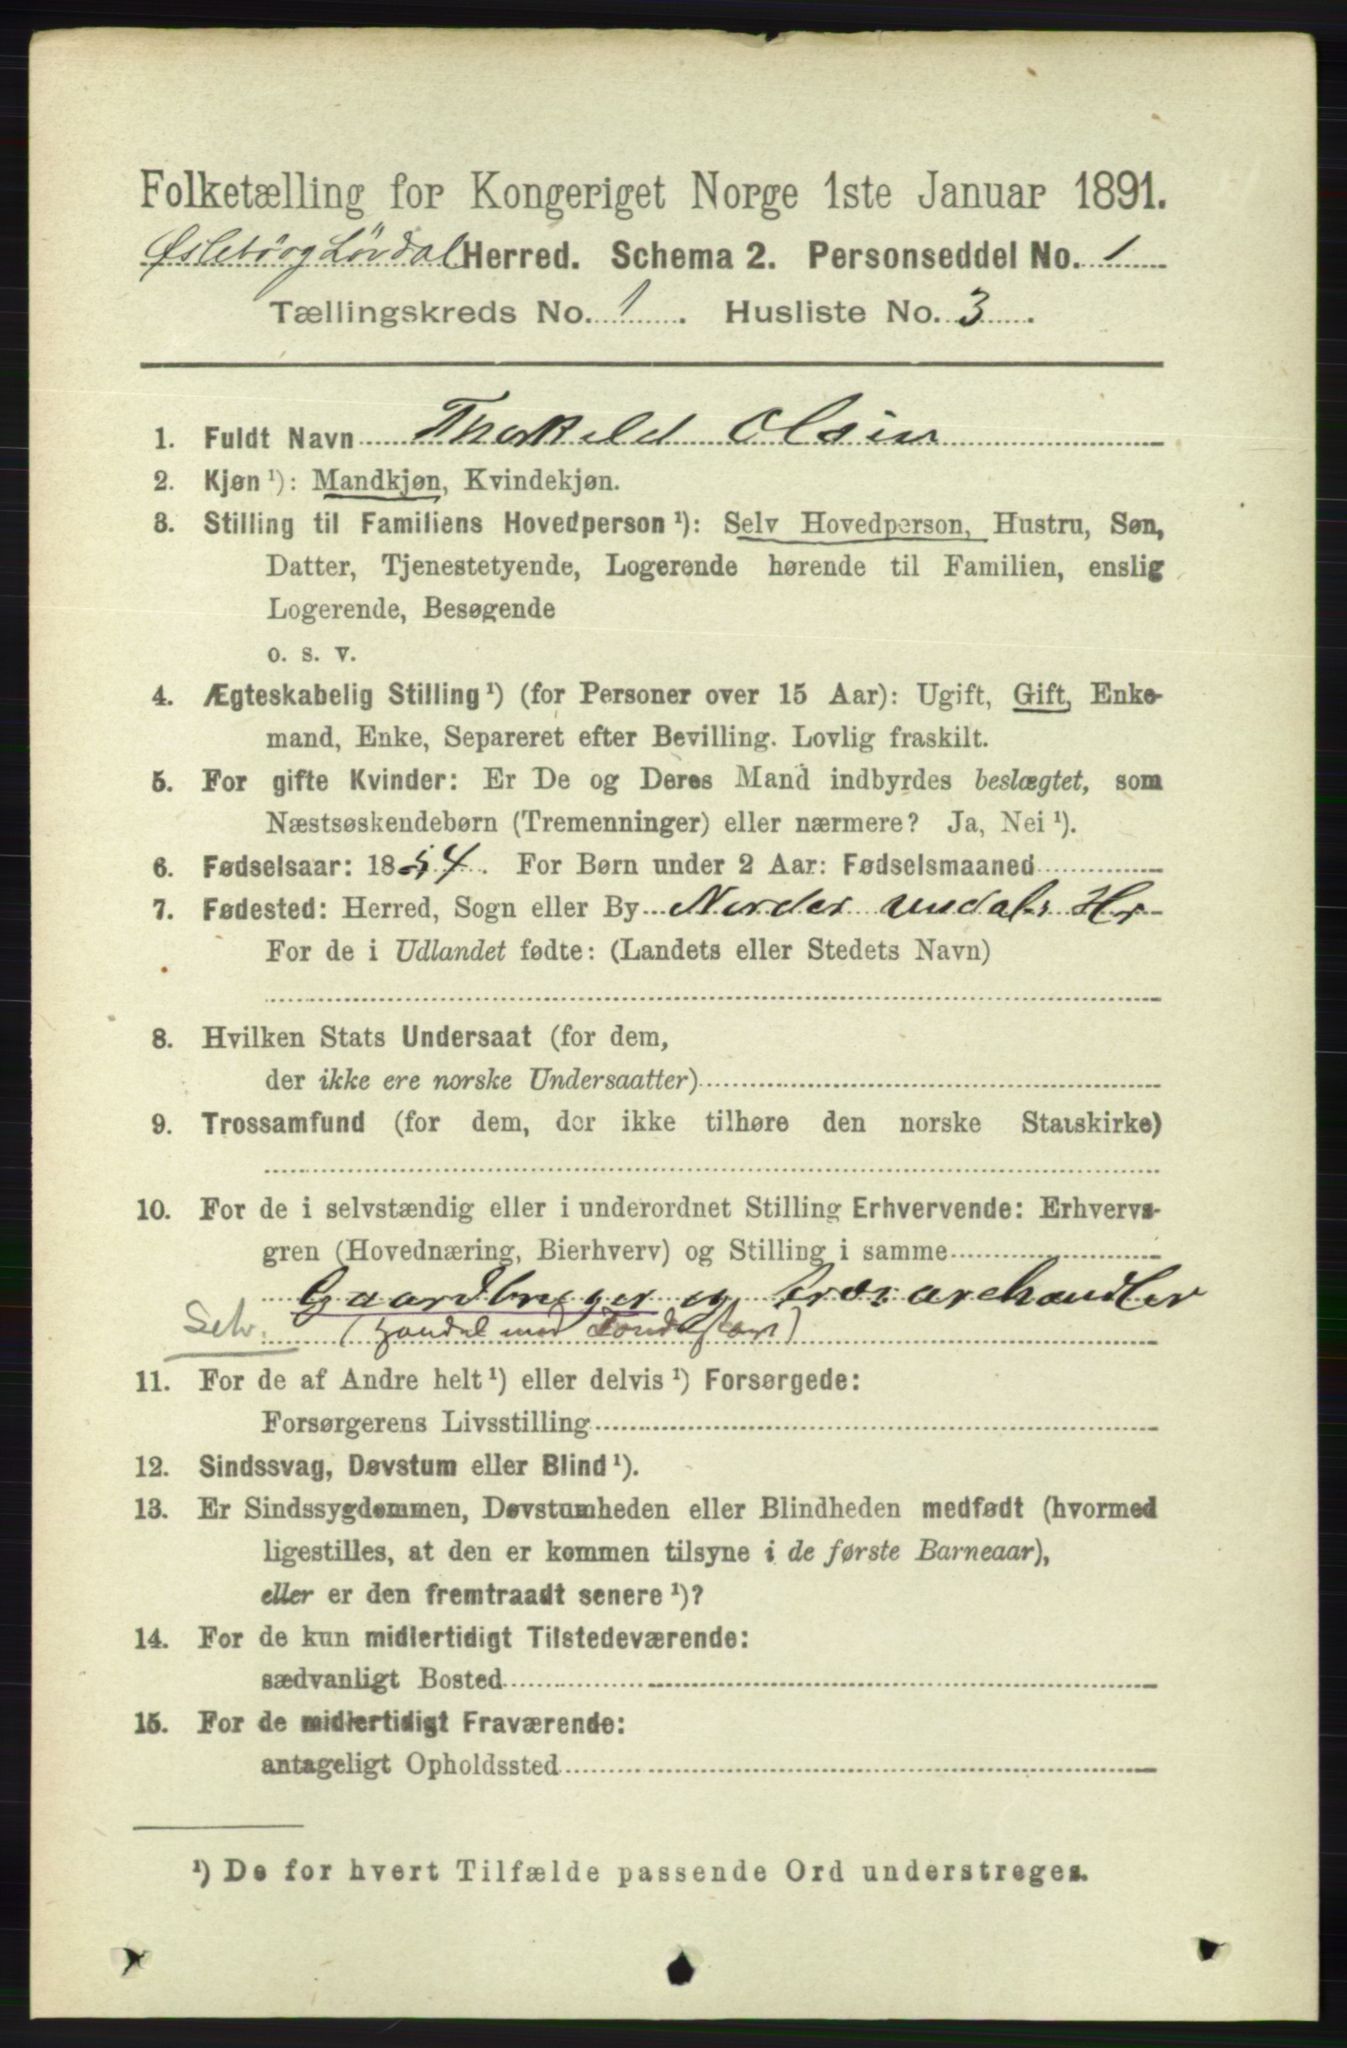 Folketælling for Kongeriget Norge 1ste Januar 1891.
Øslebø og Løvdal Herred. Schema 2. Personseddel No. 1
Tællingskreds No. 1. Husliste No. 3.
1. Fuldt Navn Thorkild Olsen
2. Kjøn ¹): Mandkjøn, Kvindekjøn.
3. Stilling til Familiens Hovedperson ¹): Selv Hovedperson, Hustru, Søn,
Datter, Tjenestetyende, Logerende hørende til Familien, enslig
Logerende, Besøgende
o. s. v.
4. Ægteskabelig Stilling ¹) (for Personer over 15 Aar): Ugift, Gift, Enke-
mand, Enke, Separeret efter Bevilling. Lovlig fraskilt.
5. For gifte Kvinder: Er De og Deres Mand indbyrdes beslægtet, som
Næstsøskendebørn (Tremenninger) eller nærmere? Ja, Nei ¹).
6. Fødselsaar: 1854. For Børn under 2 Aar: Fødselsmaaned
7. Fødested: Herred, Sogn eller By Nordre Undals Hr
For de i Udlandet fødte: (Landets eller Stedets Navn)
8. Hvilken Stats Undersaat (for dem,
der ikke ere norske Undersaatter)
9. Trossamfund (for dem, der ikke tilhøre den norske Statskirke)
10. For de i selvstændig eller i underordnet Stilling Erhvervende: Erhvervs-
gren (Hovednæring, Bierhverv) og Stilling i samme
Gaardbruger og handler
Selv. (Handel med
11. For de af Andre helt ¹) eller delvis ¹) Forsørgede:
Forsørgerens Livsstilling
12. Sindssvag, Døvstum eller Blind ¹).
13. Er Sindssygdommen, Døvstumheden eller Blindheden medfødt (hvormed
ligestilles, at den er kommen tilsyne i de første Barneaar),
eller er den fremtraadt senere ¹)?
14. For de kun midlertidigt Tilstedeværende:
sædvanligt Bosted
15. For de midlertidigt Fraværende:
antageligt Opholdssted
¹) De for hvert Tilfælde passende Ord understreges.